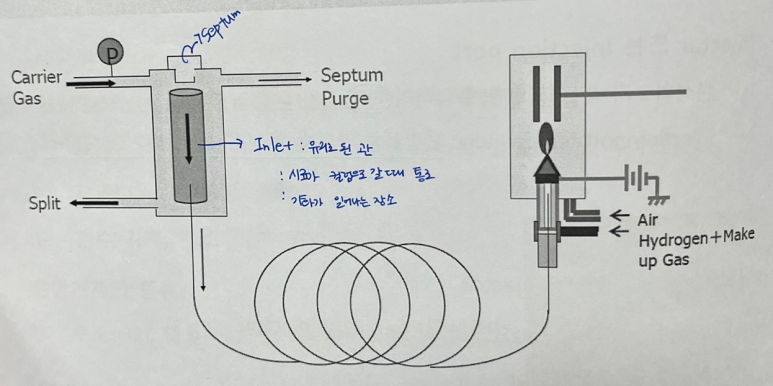 Septum
P
Carrier
Gas
Septum
Purge
Inlet : 유리로 된 관
: 시료가 컬럼으로 갈 때의 통로
: 기화가 일어나는 장소
Split
Air
Hydrogen+Make
up Gas